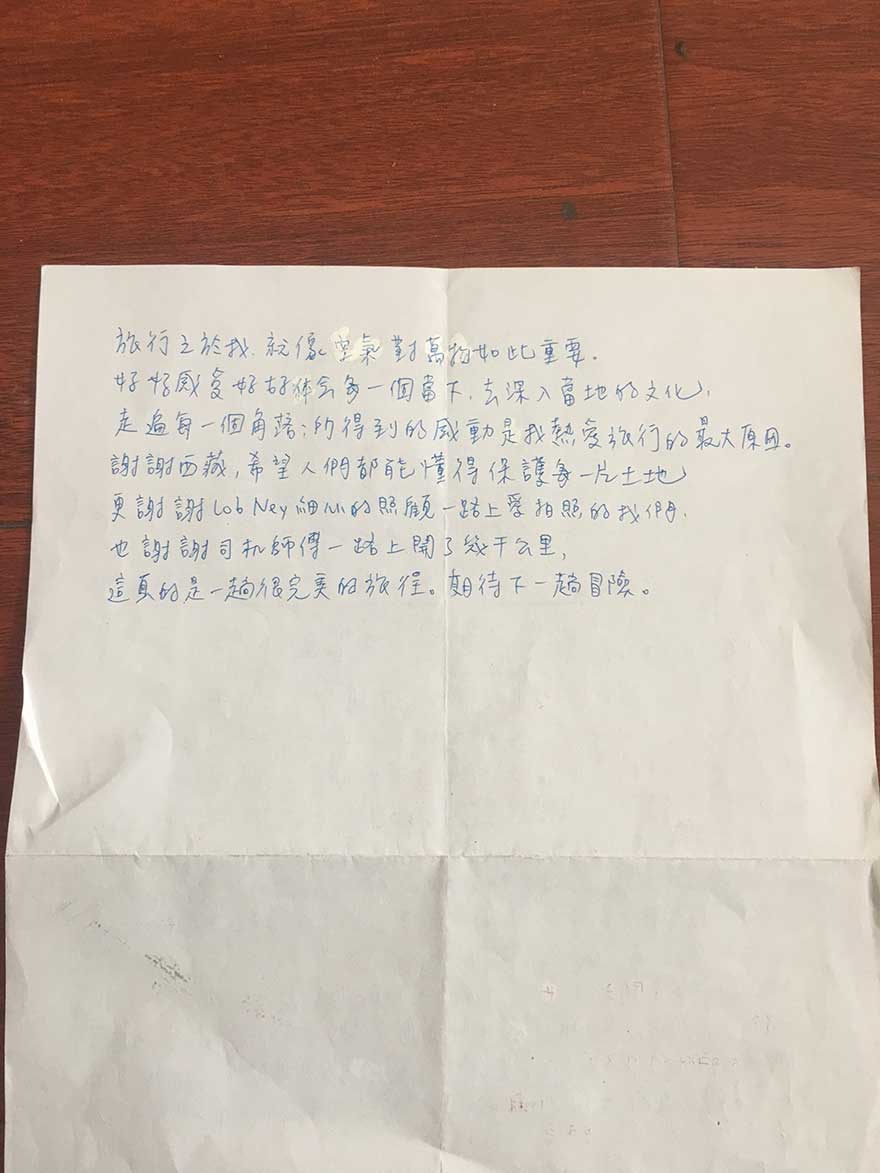 旅行之於我.就像空氣對萬物如此重要。
好好感受好好体会每一個當下.去深入當地的文化,
走遍每一個角落;所得到的感動是我熱愛旅行的最大原因。
謝謝西藏,希望人們都能懂得保護每一片土地
更謝謝Lob Ney細心的照顧一路上愛拍照的我們.
也謝謝司机師傅一路上開了幾千公里,
這真的是一趟很完美的旅程。期待下一趟冒險。